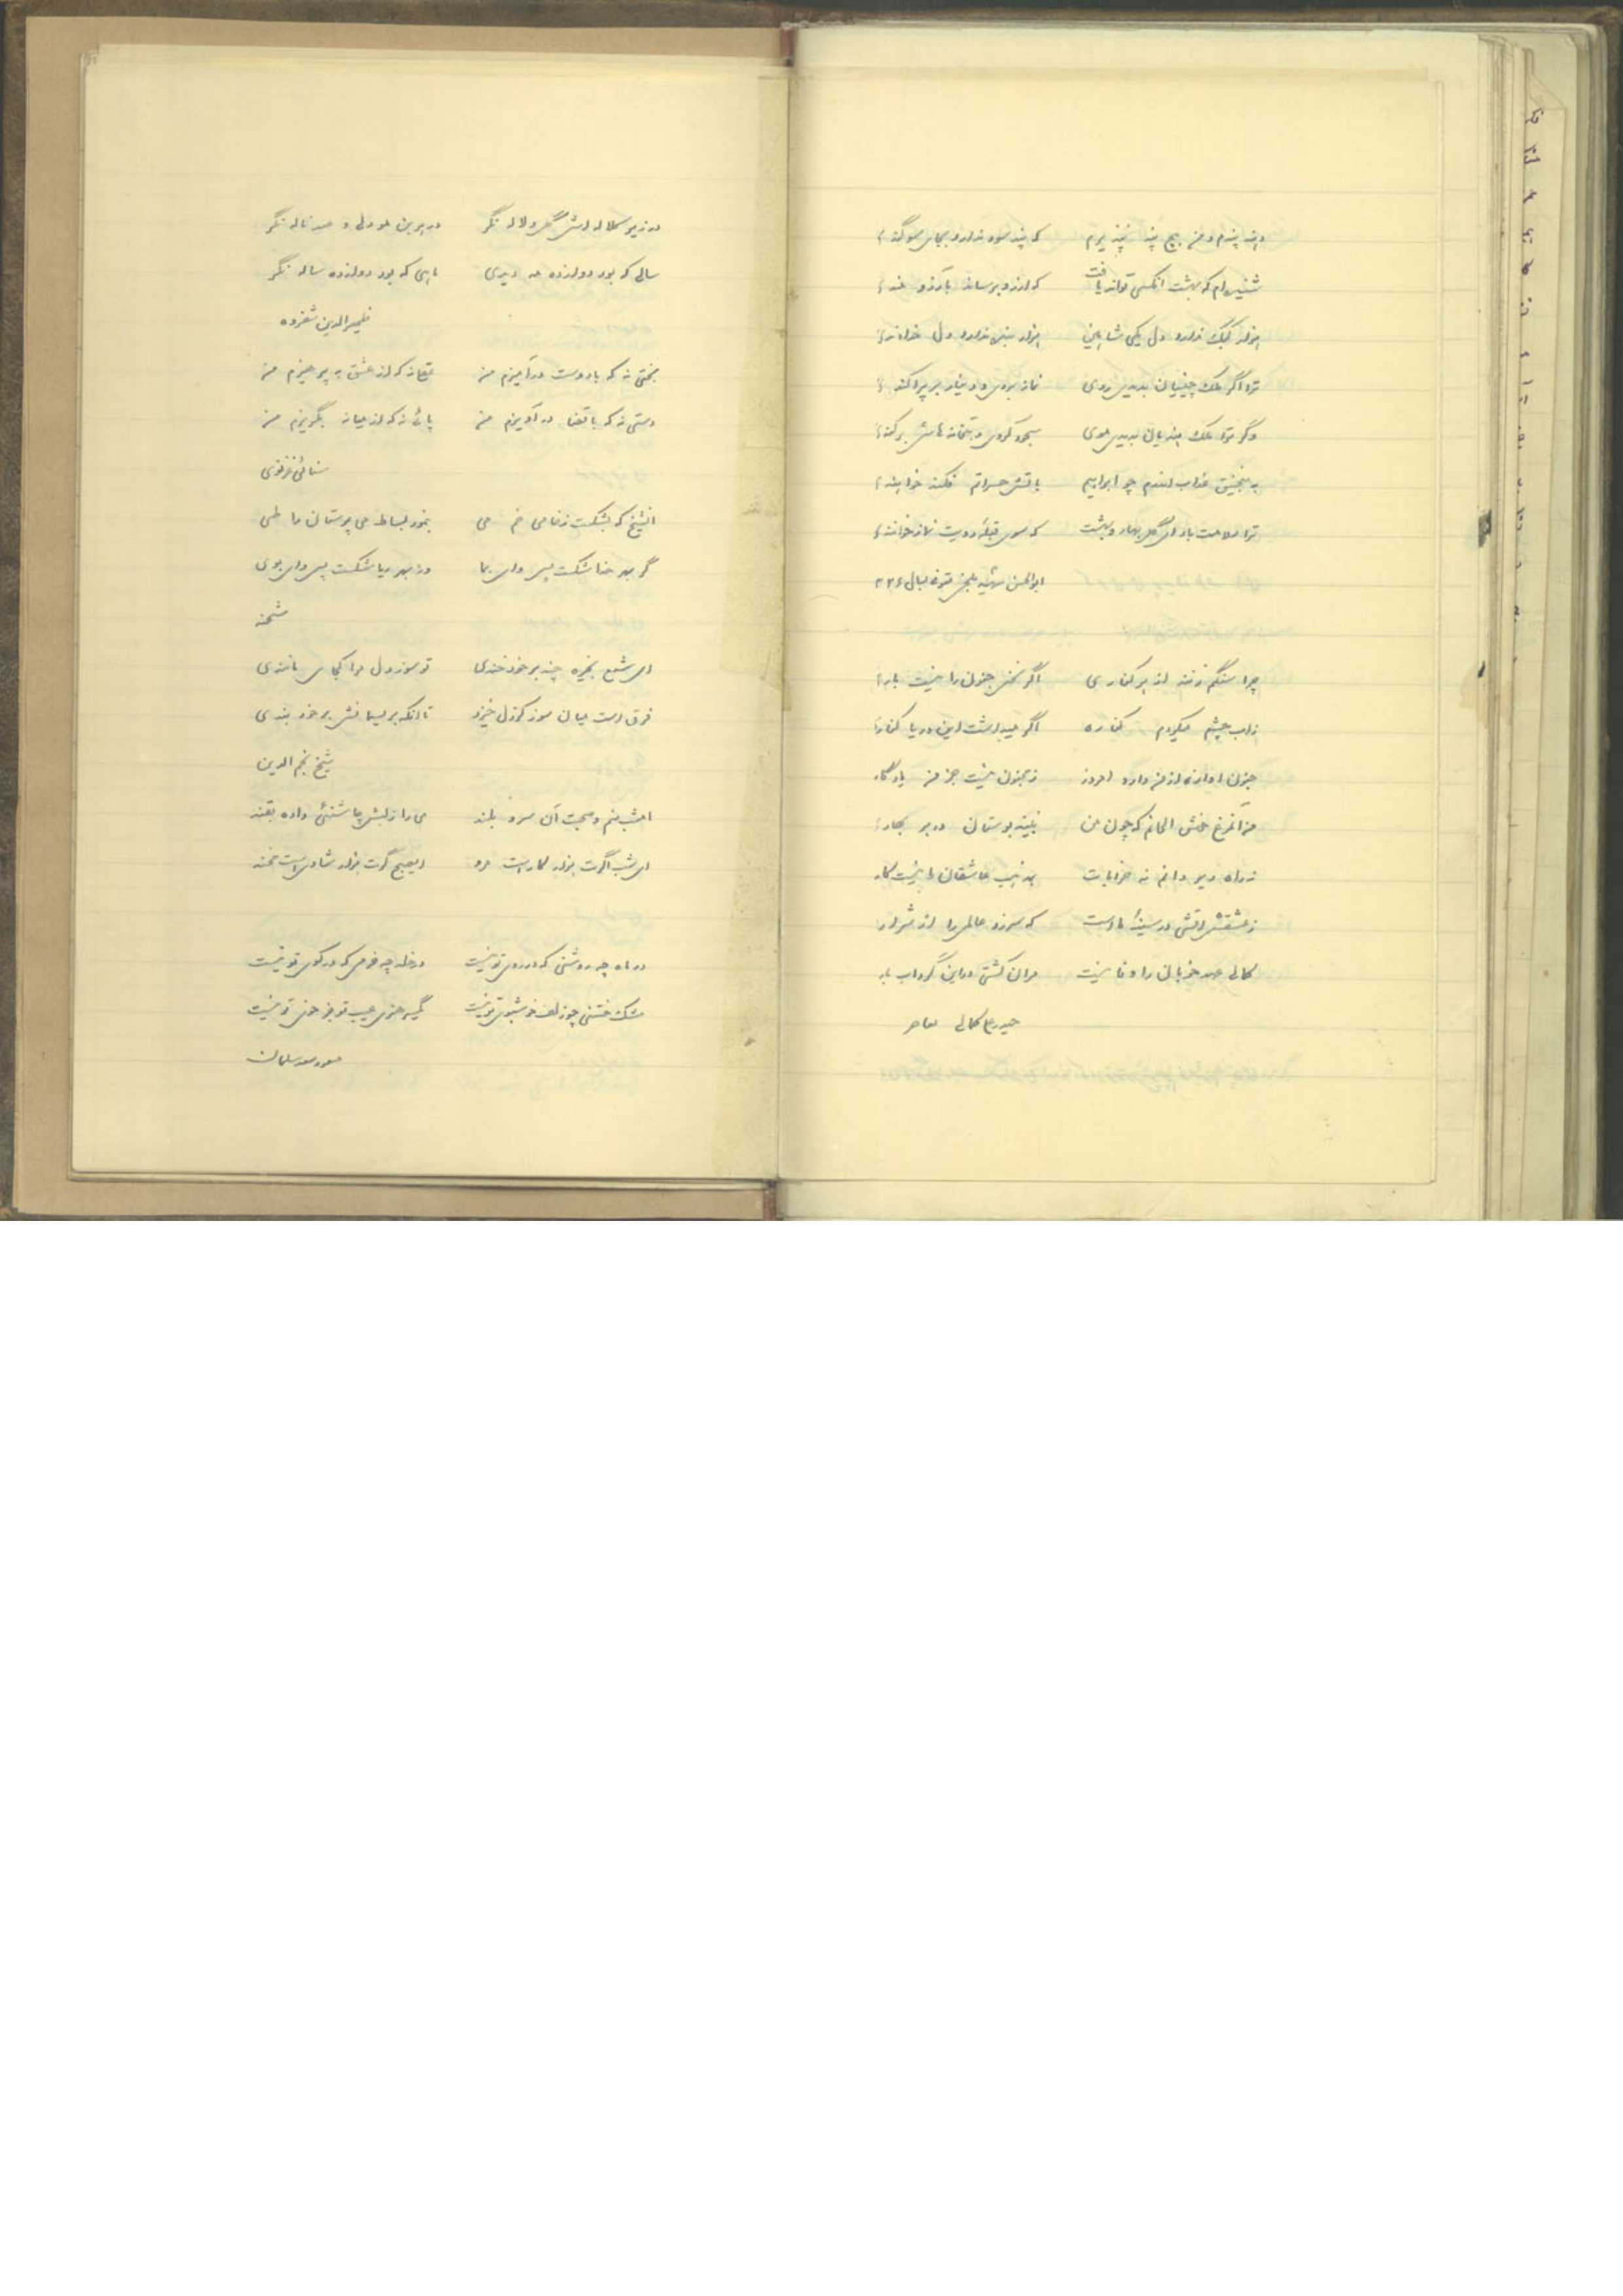 دهند پندم و من هیچ پند نپذیرم که پند سود ندارد بجای سوگندا
شنیده‌ام که بهشت آنکسی تواند یافت که آرزو برساند بآرزومندا
هزار کبک ندارد دل یکی شاهین هزار بنده ندارد دل خداوندا
ترا اگر ملک چینیان بدیدی روی نماز بردی و دینار بر پراکندا
وگر ترا ملک هندیان بدیدی موی سجود کردی و بتخانه‌هاش برکندا
به منجنیق عذاب اندرم چو ابراهیم باتش حسراتم فکند خواهندا
ترا سلامت باد ای گل بهار و بهشت که سوی قبله رویت نماز خوانندا
ابوالحسن شهید بلخی متوفی بسال ۳۲۵
چرا سنگم زنند از هر کناری اگر نخل جنون را نیست بارا
ز آب چشم میکردم کناره اگر میداشت این دریا کنارا
جنون آوازه از من دارد امروز ز مجنون نیست جز من یادگارا
من آنمرغ خوش الحانم که چون من نبیند بوستان در هر بهارا
نه راه دیر دانم نه خرابات بمذهب عاشقان را نیست کارا
ز عشقش آتشی در سینه ماست که سوزد عالمی را از شرارا
کمالی عهد خوبان را وفا نیست مران کشتی در این گرداب بارا
حیدرعلی کمالی معاصر
در زیر کلاله‌اش گل و لاله نگر در هر بن مو دلی و صد ناله نگر
سالی که بود دوازده مه دیدی ماهی که بود دوازده ساله نگر
ظهیرالدین شفروه
بختی نه که با دوست درآمیزم من عقلی نه که از عشق بپرهیزم من
دستی نه که با قضا درآویزم من پائی نه که از میانه بگریزم من
سنائی غزنوی
آنشیخ که بشکست ز خامی خم می بنمود بساط می پرستان را طی
گر بهر خدا شکست پس وای بما ور بهر ریا شکست پس وای بوی
شحنه
ای شمع بخیره چند بر خود خندی تو سوز دل مرا کجا مانندی
فرق است میان سوز کز دل خیزد تا آنکه بریسمانش بر خود بندی
شیخ نجم‌الدین
امشب منم و صحبت آن سرو بلند می را ز لبش چاشنئی داده بقند
ای شب اگرت هزار کار است مرو ای صبح گرت هزار شادی است مخند
در ماه چه روشنی که در روی تو نیست در خلد چه خرمی که در کوی تو نیست
مشک ختنی چو زلف خوشبوی تو نیست یکسر هنری عیب تو جز خوی تو نیست
مسعود سعد سلمان